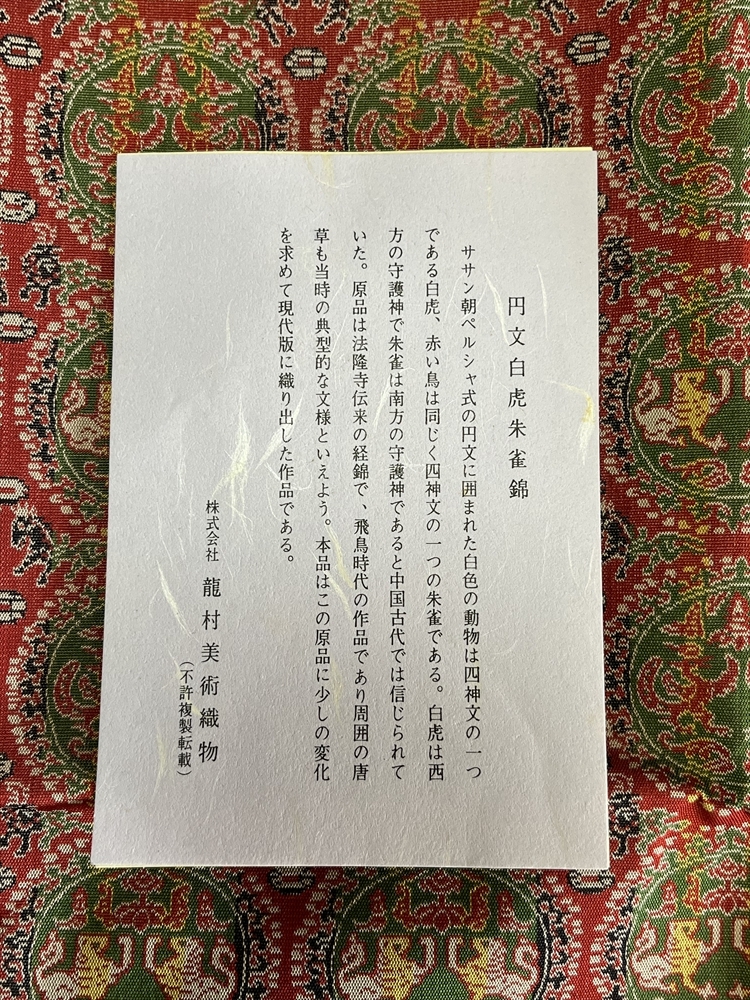 円文白虎朱雀錦
ササン朝ペルシャ式の円文に囲まれた白色の動物は四神文の一つ
である白虎、赤い鳥は同じく四神文の一つの朱雀である。白虎は西
方の守護神で朱雀は南方の守護神であると中国古代では信じられて
いた。原品は法隆寺伝来の経錦で、飛鳥時代の作品であり周囲の唐
草も当時の典型的な文様といえよう。本品はこの原品に少しの変化
を求めて現代版に織り出した作品である。
株式会社 龍村美術織物
(不許複製転載)